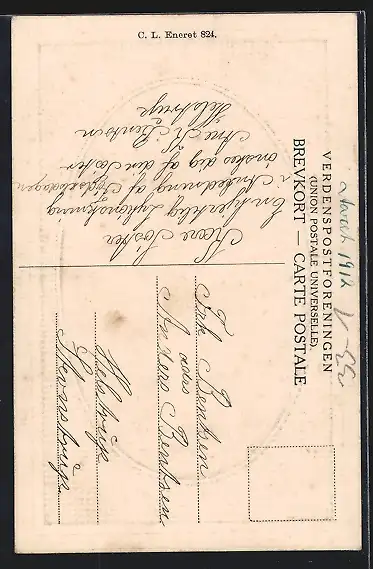 C. L. Eneret 824.
VERDENSPOSTFORENINGEN
(UNION POSTALE UNIVERSELLE).
BREVKORT — CARTE POSTALE
March 1912
Kære Søster
En hjertelig Lykønskning
i Anledning af Fødselsdagen
ønskes dig af din Søster
Ane K Bentsen
Frk Bentsen
adrs
Anders Bentsen